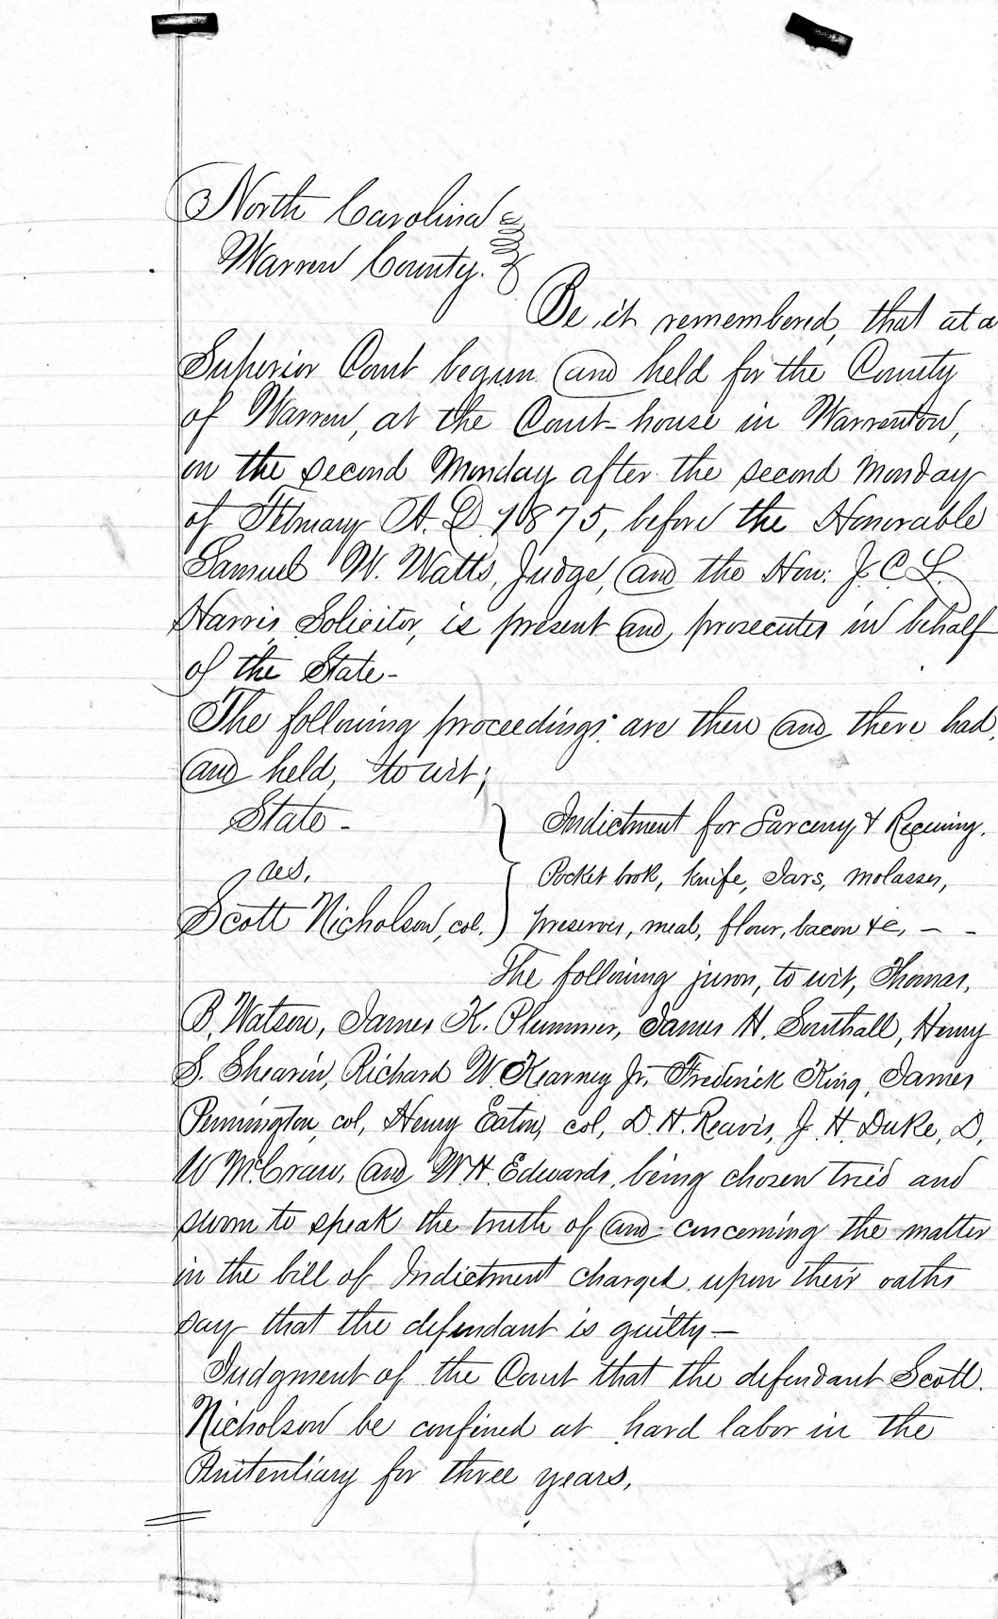 North Carolina
Warren County.
Be it remembered, that at a
Superior Court begun and held for the County
of Warren, at the Court-house in Warrenton,
on the second Monday after the second Monday
of February A.D. 1875, before the Honorable
Samuel W. Watts, Judge, and the Hon: J. C. L.
Harris, Solicitor, is present and, prosecutes in behalf
of the State-
The following proceedings are then and there had,
and held, to wit;
State -
vs.
Scott Nicholson, col.
Indictment for Larceny & Receiving.
Pocket book, knife, Jars, molasses,
preserves, meal, flour, bacon &c, - -
The following jurors, to wit, Thomas,
B. Watson, James K. Plummer, James H. Southall, Henry
S. Shearin, Richard W. Kearney Jr. Frederick King, James
Pennington, col, Henry Eaton, col, D. H. Reavis, J. H. Duke, D,
W McCraw, and W H. Edwards, being chosen tried and
sworn to speak the truth of and concerning the matter
in the bill of Indictment charged upon their oaths
say that the defendant is guilty-
Judgment of the Court that the defendant Scott.
Nicholson be confined at hard labor in the
Penitentiary for three years.